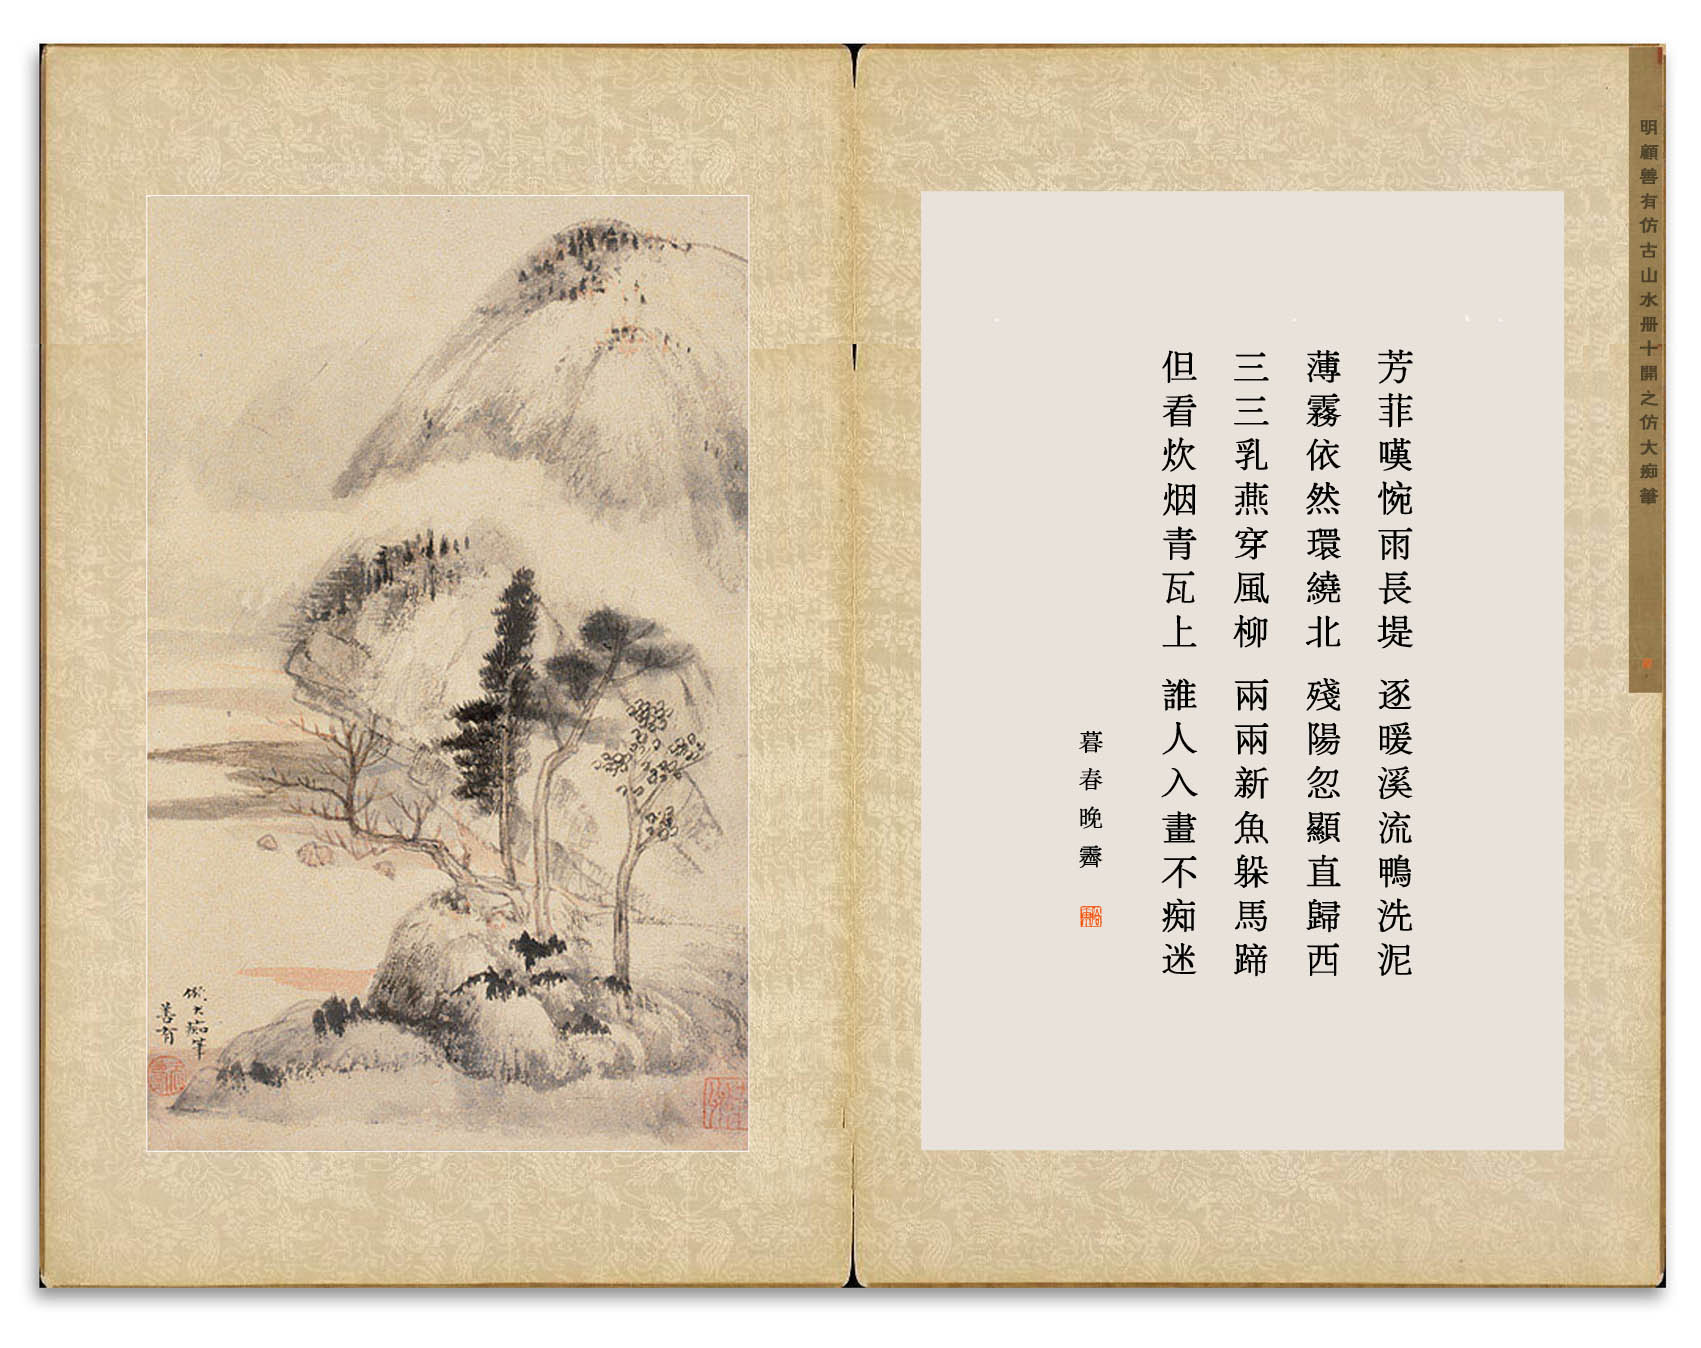 明顧善有仿古山水册十開之仿大痴筆
芳菲嘆惋雨長堤 逐暖溪流鴨洗泥
薄霧依然環繞北 殘陽忽顯直歸西
三三乳燕穿風柳 兩兩新魚躲馬蹄
但看炊烟青瓦上 誰人入畫不痴迷
暮春晚霽
倣大痴筆
善有